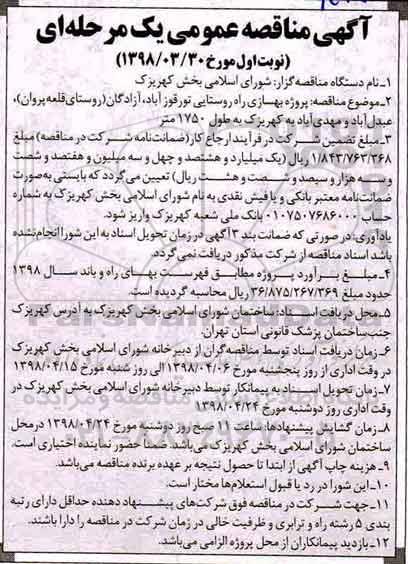 آگهی مناقصه عمومی یک مرحله‌ای
(نوبت اول مورخ ۱۳۹۸/۰۳/۳۰)
۱-نام دستگاه مناقصه گزار: شورای اسلامی بخش کهریزک
۲-موضوع مناقصه: پروژه بهسازی راه روستایی تورقوز آباد، آزادگان(روستای قلعه پروان)،
عبدل آباد و مهدی آباد به کهریزک به طول ۱۷۵۰ متر
۳-مبلغ تضمین شرکت در فرآیند ارجاع کار(ضمانت‌نامه شرکت در مناقصه) مبلغ
۱/۸۴۳/۷۶۳/۳۶۸ ریال (یک میلیارد و هشتصد و چهل و سه میلیون و هفتصد و شصت
و سه هزار و سیصد و شصت و هشت ریال) تعیین می‌گردد که بایستی به‌صورت
ضمانت‌نامه معتبر بانکی و یا فیش نقدی به نام شورای اسلامی بخش کهریزک به شماره
حساب ۰۱۰۷۵۰۷۶۸۶۰۰۰ بانک ملی شعبه کهریزک واریز شود.
یادآوری: در صورتی که ضمانت بند ۳ آگهی در زمان تحویل اسناد به این شورا انجام‌نشده
باشد اسناد مناقصه از شرکت مذکور دریافت نمی‌گردد.
۴-مبلغ برآورد پروژه مطابق فهرست بهای راه و باند سال ۱۳۹۸
حدود مبلغ ۳۶/۸۷۵/۲۶۷/۳۶۹ ریال محاسبه گردیده است.
۵-محل دریافت اسناد: ساختمان شورای اسلامی بخش کهریزک به آدرس کهریزک
جنب ساختمان پزشک قانونی استان تهران.
۶-زمان دریافت اسناد توسط مناقصه‌گران از دبیرخانه شورای اسلامی بخش کهریزک
در وقت اداری از روز پنجشنبه مورخ ۱۳۹۸/۰۴/۰۶ الی روز شنبه مورخ ۱۳۹۸/۰۴/۱۵
۷-زمان تحویل اسناد به پیمانکار توسط دبیرخانه شورای اسلامی بخش کهریزک در
وقت اداری روز دوشنبه مورخ ۱۳۹۸/۰۴/۲۴
۸-زمان گشایش پیشنهادها: ساعت ۱۱ صبح روز دوشنبه مورخ ۱۳۹۸/۰۴/۲۴ در محل
ساختمان شورای اسلامی بخش کهریزک می‌باشد. ضمنا حضور نماینده اختیاری است.
۹-هزینه چاپ آگهی از ابتدا تا حصول نتیجه بر عهده برنده مناقصه می‌باشد.
۱۰-این شورا در رد یا قبول استعلام‌ها مختار است.
۱۱-جهت شرکت در مناقصه فوق شرکت‌های پیشنهاد دهنده حداقل دارای رتبه
بندی ۵ رشته راه و ترابری و ظرفیت خالی در زمان شرکت در مناقصه را دارا باشند.
۱۲-بازدید پیمانکاران از محل پروژه الزامی می‌باشد.